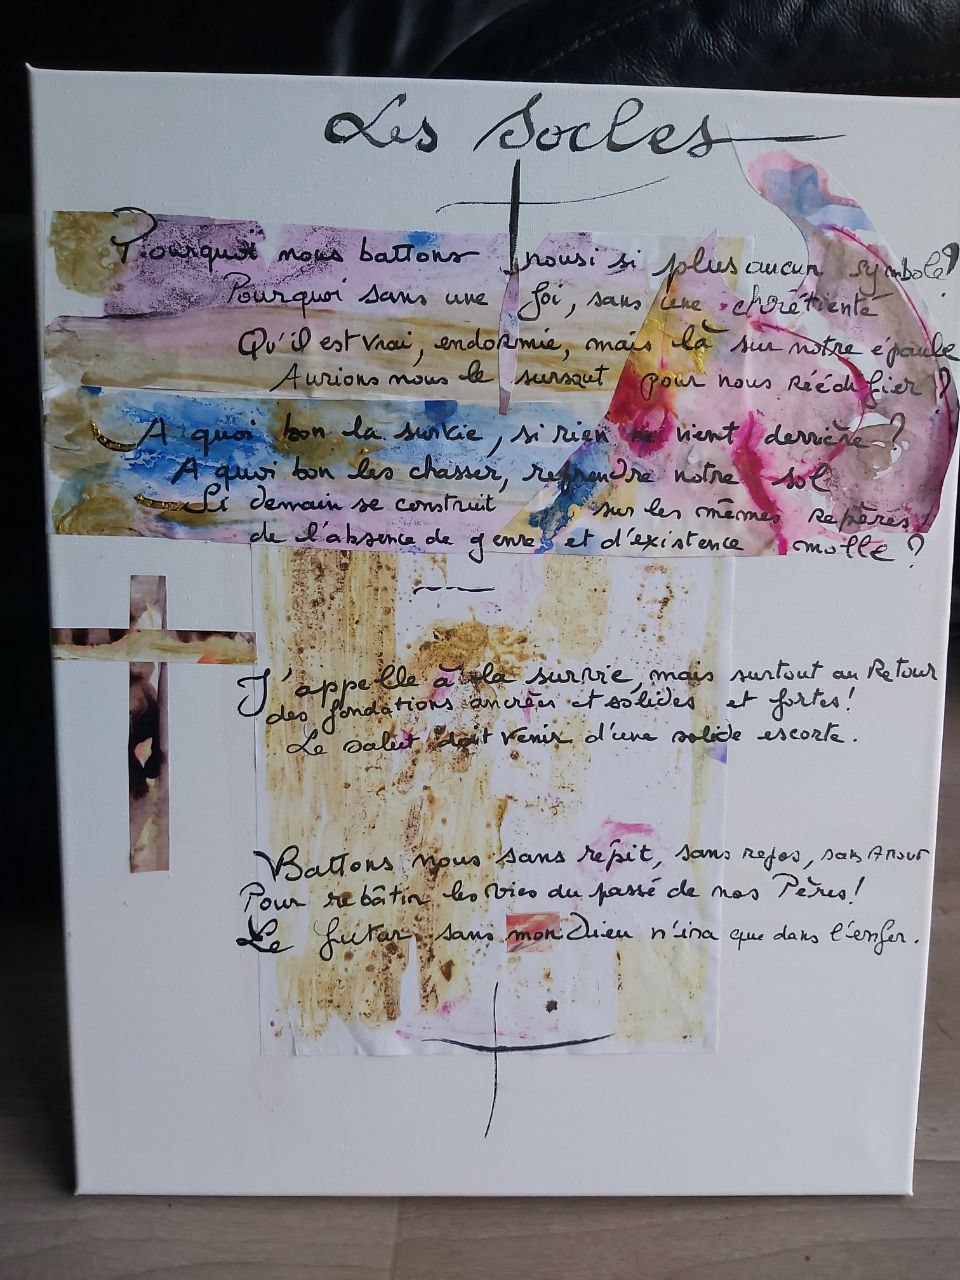 Les Socles
Pourquoi nous battons nous si plus aucun symbole?
Pourquoi sans une foi, sans une chrétienté
Qu'il est vrai, endormie, mais là sur notre épaule
Aurions nous le sursaut pour nous réédifier?
A quoi bon la survie, si rien ne vient derrière?
A quoi bon les chasser, reprendre notre sol
Si demain se construit sur les mêmes repères
de l'absence de genre et d'existence molle?
J'appelle à la survie, mais surtout au Retour
des fondations ancrées et solides et fortes!
Le salut doit venir d'une solide escorte.
Battons nous sans répit, sans repos, sans Amour
Pour rebâtir les vies du passé de nos Pères!
Le futur sans mon Dieu n'ira que dans l'enfer.